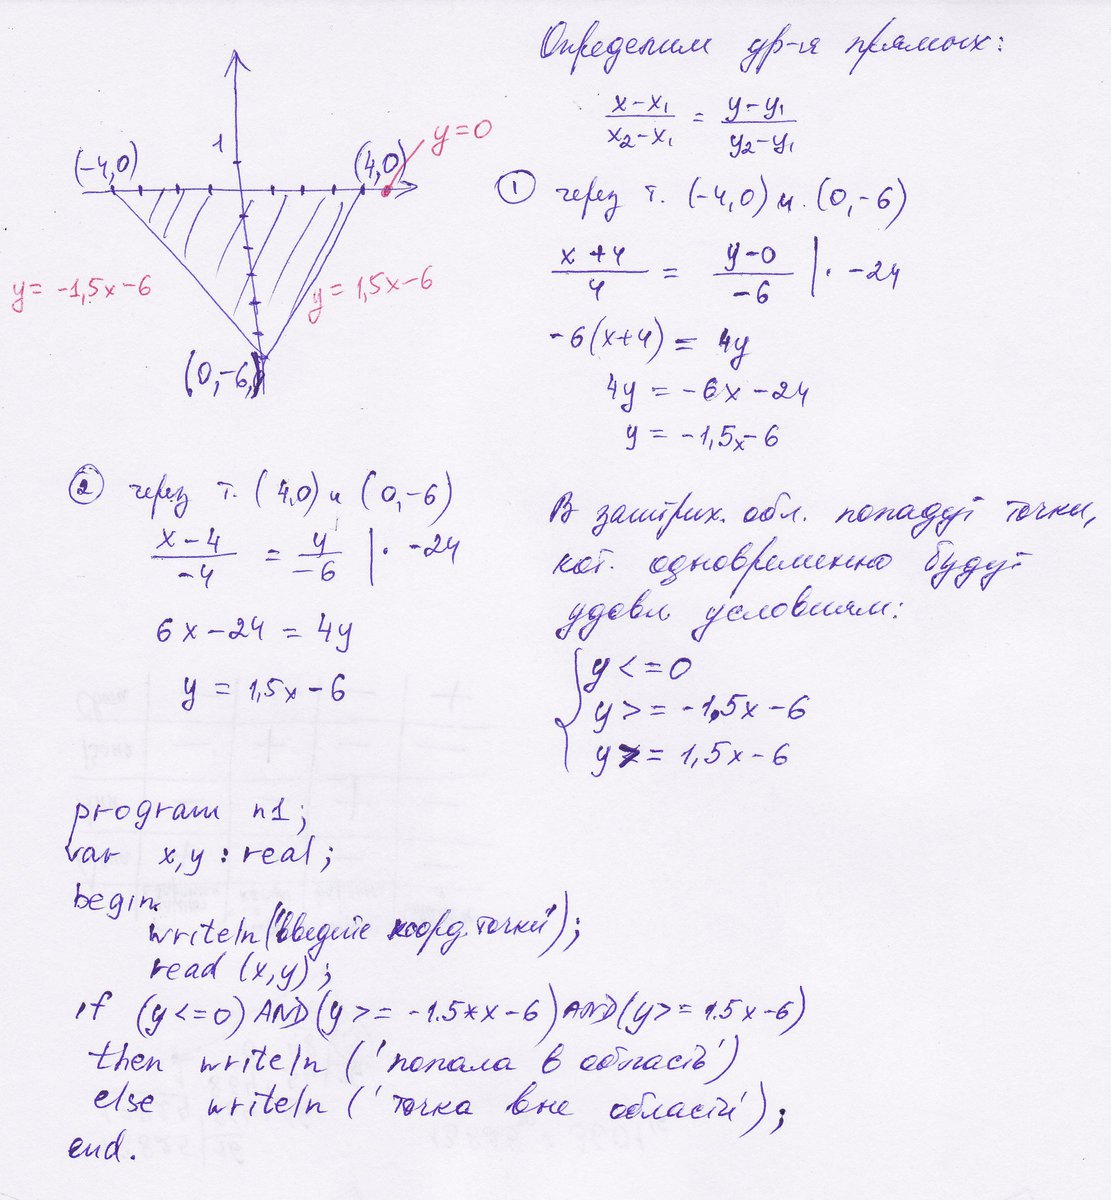 Определим ур-я прямых:
x-x₁ / x₂-x₁ = y-y₁ / y₂-y₁
1
(-4,0)
(4,0)
y=0
y= -1,5x-6
y= 1,5x-6
(0,-6)
① через т. (-4,0) и (0,-6)
x+4 / 4 = y-0 / -6 | · -24
-6(x+4) = 4y
4y = -6x-24
y = -1,5x-6
② через т. (4,0) и (0,-6)
x-4 / -4 = y / -6 | · -24
6x-24 = 4y
y = 1,5x-6
В заштрих. обл. попадут точки,
кот. одновременно будут
удовл условиям:
y<=0
y>= -1,5x-6
y>= 1,5x-6
program n1;
var x,y : real;
begin
writeln('введите коорд. точки');
read (x,y);
if (y<=0) AND (y>= -1.5*x-6) AND (y>= 1.5x-6)
then writeln ('попала в область')
else writeln ('точка вне области');
end.